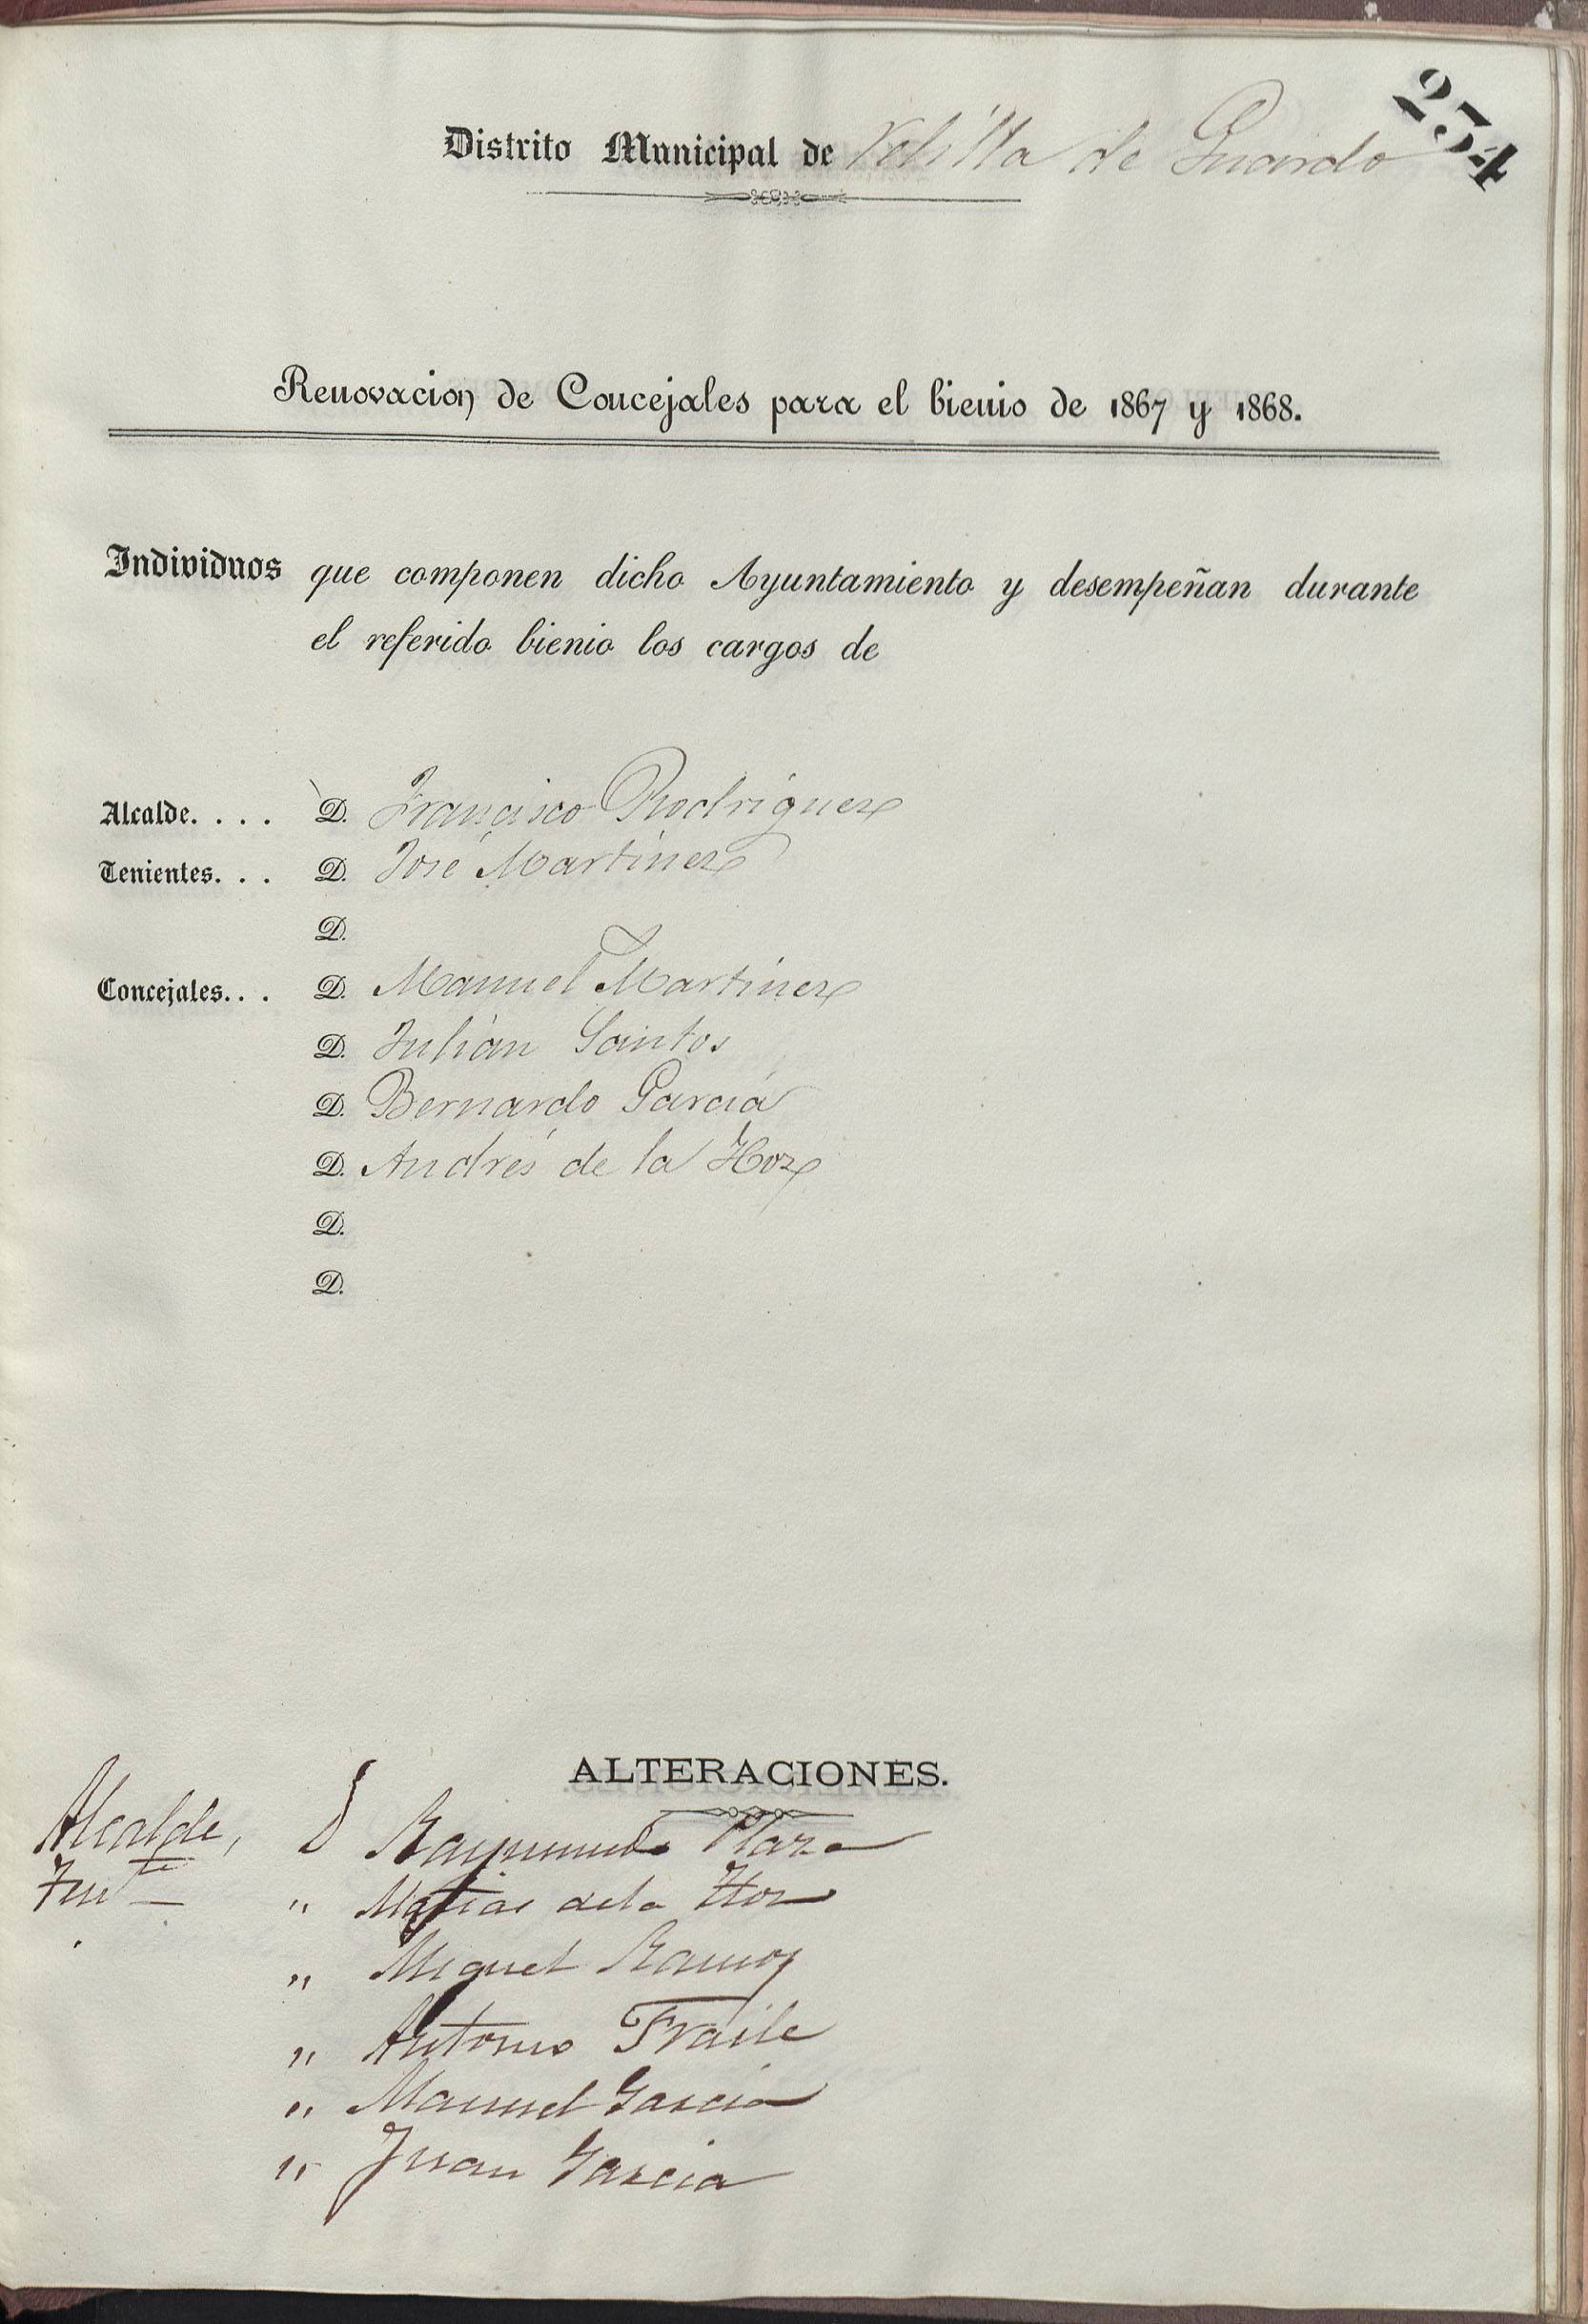 254
Distrito Municipal de Velilla de Guardo
Renovacion de Concejales para el bienio de 1867 y 1868.
Individuos que componen dicho Ayuntamiento y desempeñan durante
el referido bienio los cargos de
Alcalde. . . . D. Francisco Rodriguez
Tenientes. . . D. José Martinez
D.
Concejales. . . D. Manuel Martinez
D. Julián Santos
D. Bernardo García
D. Andrés de la Hoz
D.
D.
ALTERACIONES.
Alcalde, D Raymundo Plaza
Tente " Matias de la Hoz
" Miguel Ramos
" Antonio Fraile
" Manuel Garcia
" Juan Garcia